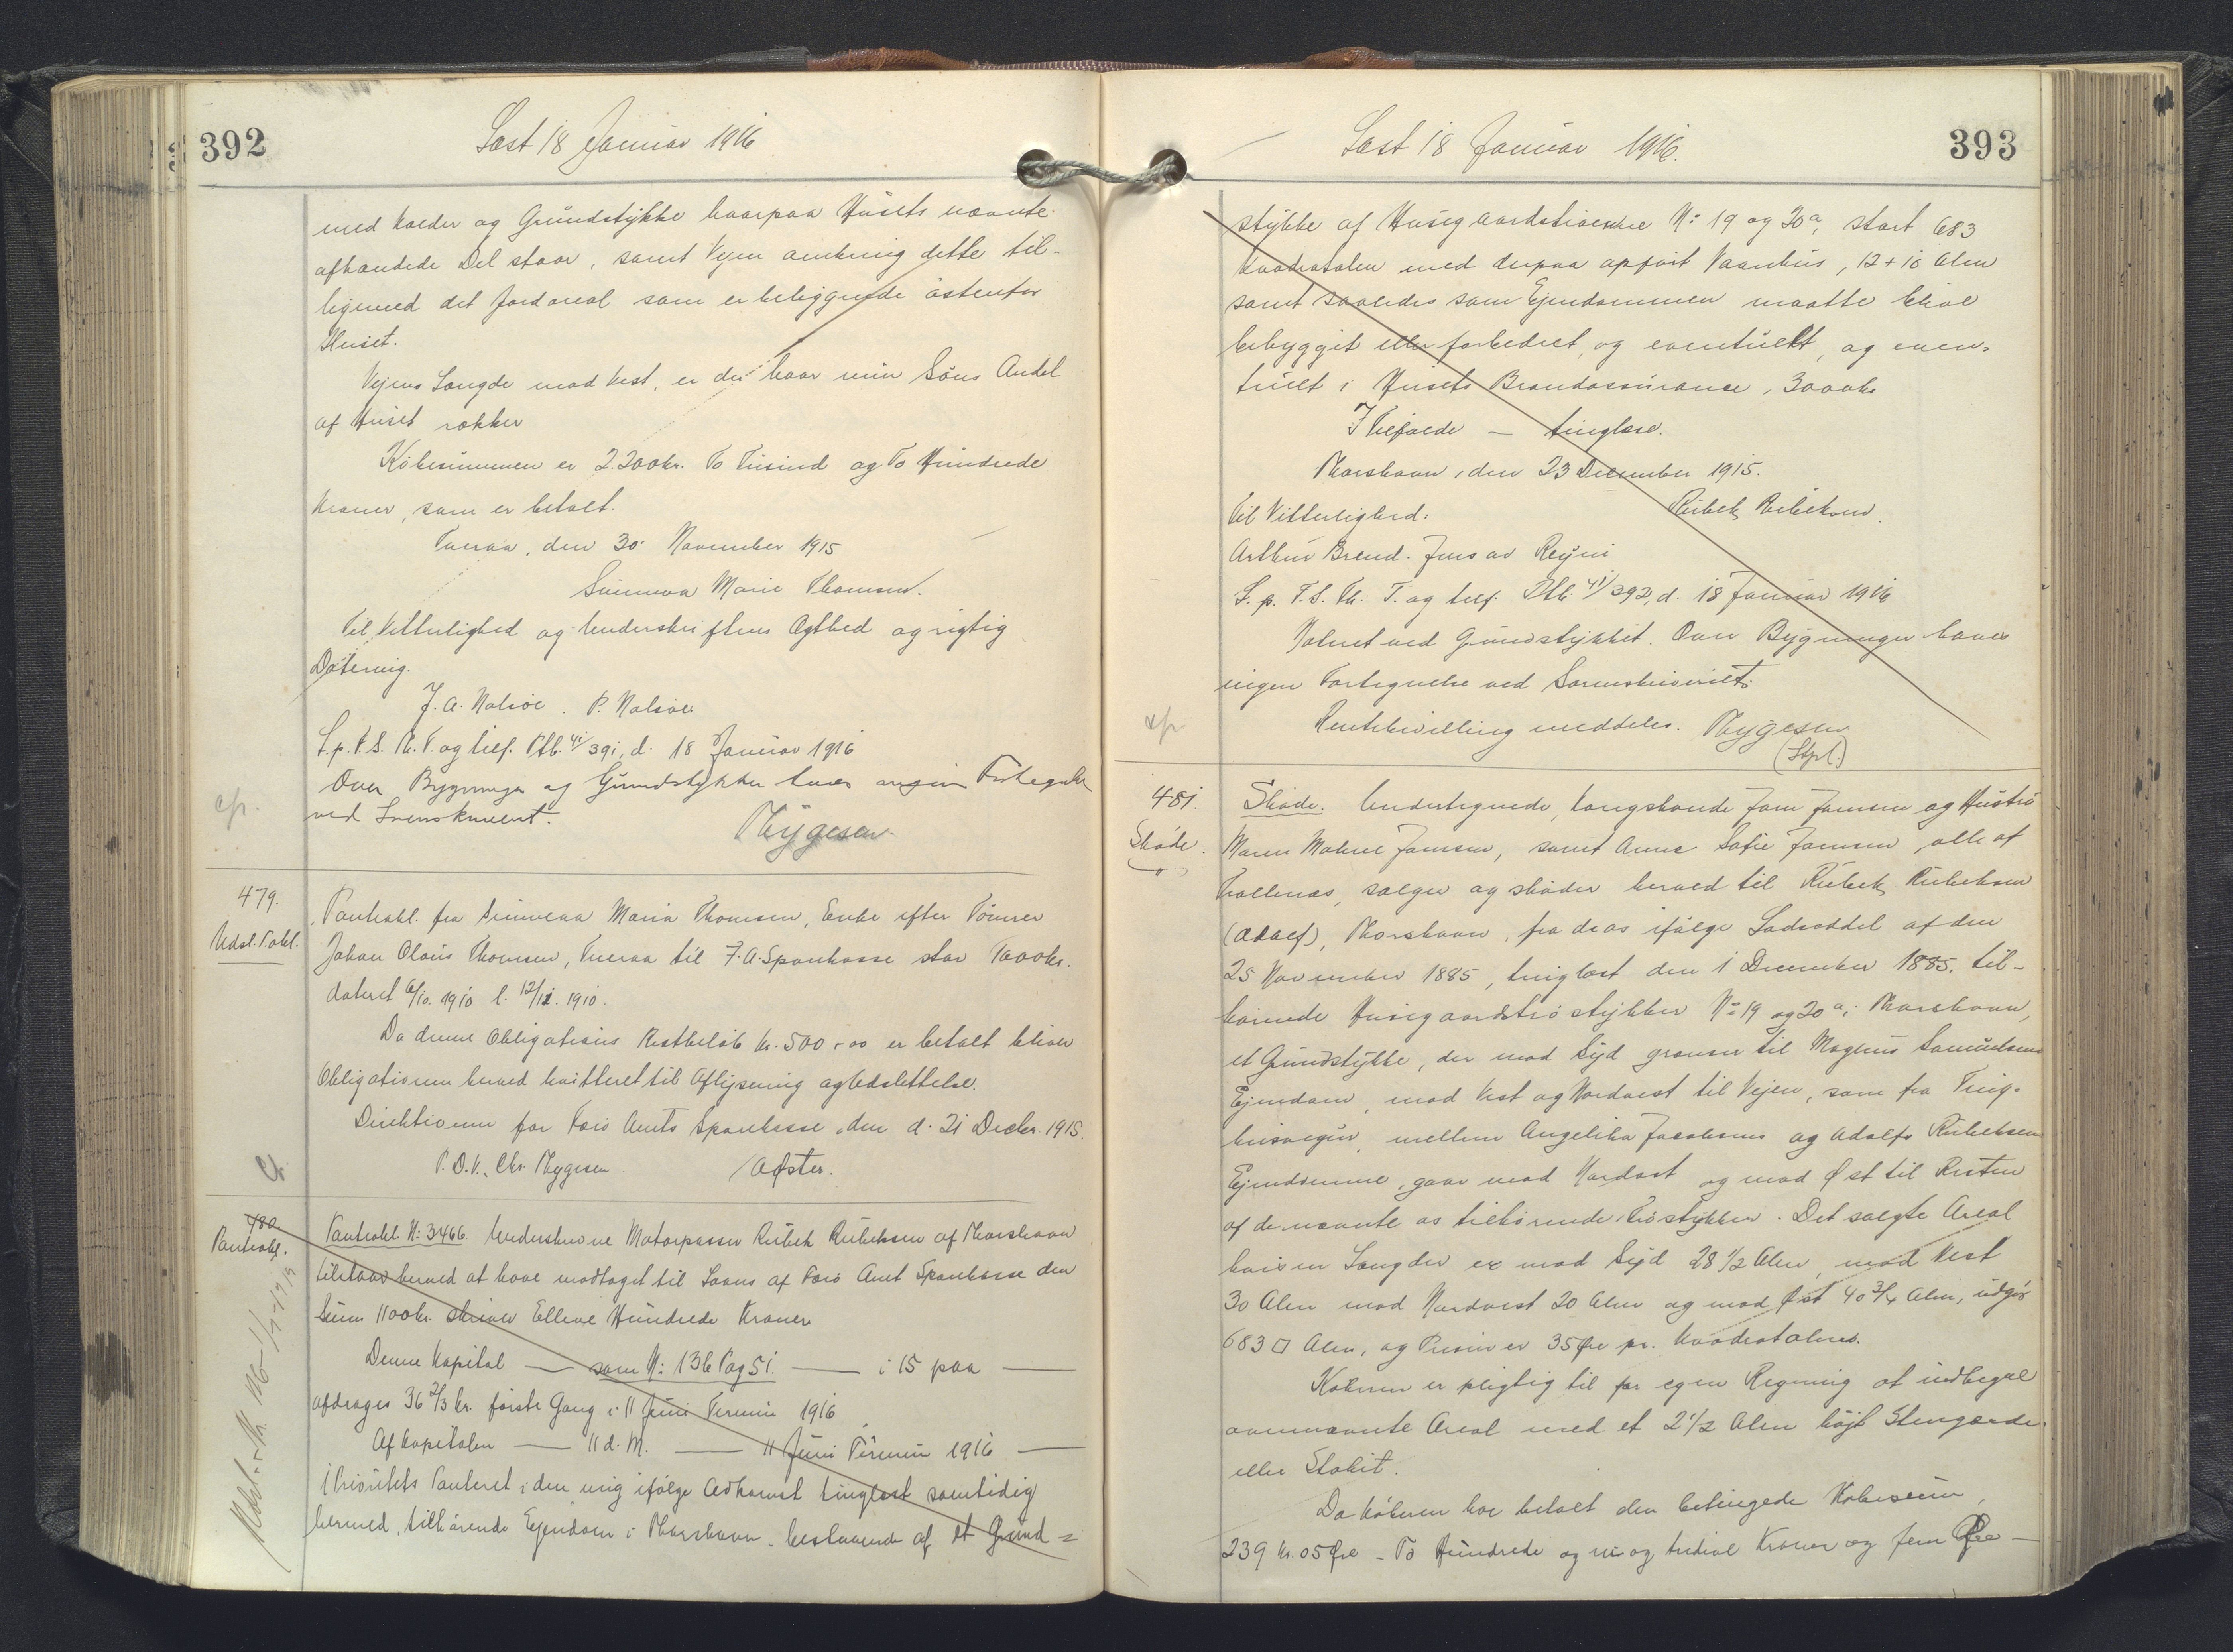 392
Læst 18 Januar 1916
med Kælder og Grundstykke hvorpaa Husets nævnte
afhændede Del staar, samt Vejen omkring dette til-
ligemed det Jordareal som er beliggende østenfor
Huset.
Vejens Længde mod Vest, er der hvor min Søns Andel
af Huset rækker
Købesummen er 2.200kr. To Tusind og To Hundrede
Kroner, som er betalt.
Tveraa, den 30 November 1915
Sunneva Marie Thomsen.
Til Vitterlighed og Underskriftens Ægthed og rigtig
Datering.
J. A. Nolsøe. P. Nolsøe
L. p. F. S. Th. T. og tilf. Ptb. 41/391, d. 18 Januar 1916
Over Bygninger og Grundstykker haves ingen Fortegnelse
cfr.
ved Sorenskriveriet.
Mygesen
479.
Udsl. Pobl.
Pantobl. fra Sunneva Maria Thomsen, Enke efter Tømrer
Johan Olaus Thomsen, Tveraa til F. A. Sparkasse stor 1000kr.
dateret 6/10. 1910 l. 12/12. 1910.
Da denne Obligations Restbeløb kr. 500,00 er betalt bliver
Obligationen herved kvitteret til Aflysning og Udslettelse.
Direktionen for Færø Amts Sparekasse, den d. 21 Decbr. 1915.
P. D. V. Chr. Mygesen Øster.
480.
Pantobl.
Pantobl. N: 3466. Underskrevne Motorpasser Rubek Rubeksen af Thorshavn
tilstaar herved at have modtaget til Laans af Færø Amt Sparekasse den
Sum 1100kr. skriver Elleve Hundrede Kroner
Denne Kapital — som N: 136 Pag 51. — i 15 paa —
afdrages 36 2/3 kr. første Gang i 11 Juni Termin 1916
Af Kapitalen — 11 d. M. — 11 Juni Termin 1916 —
1 Prioritets Panteret i den mig ifølge Adkomst tinglæst samtidig
hermed, tilhørende Ejendom i Thorshavn, bestaaende af et Grund=
393
Læst 18 Januar 1916.
stykke af Husigaardstrøerne N: 19 og 20a, stort 683
Kvadratalen med derpaa opført Vaanhus, 12 + 10 Alen
samt saaledes som Ejendommen maatte blive
bebygget eller forbedret, og eventuelt, og even-
tuelt i Husets Brandassurance, 3000kr
I Tilfælde — tinglæse.
Thorshavn, den 23 December 1915.
Til Vitterlighed: Rubek Rubeksen.
Arthur Brend. Jens av Reyni
L. p. F. S. Th. T. og tilf. Ptb. 41/392, d. 18 Januar 1916
Noteret ved Grundstykket. Over Bygninger haves
ingen Fortegnelse ved Sorenskriveriet.
cfr
Rentebevilling meddeles. Mygesen
(Stpl.)
481.
Skøde.
Skøde. Undertegnede, Kongsbonde Joen Joensen og Hustru
Maren Malene Joensen, samt Anna Sofie Joensen, alle af
Trøllenæs, sælger og skøder herved til Rubek Rubeksen
(Adolf), Thorshavn, fra de os ifølge Lodseddel af den
25 November 1885, tinglæst den 1 December 1885. til-
hørende Husigaardstrøstykker N: 19 og 20a i Thorshavn,
et Grundstykke, der mod Syd grænser til Magnus Samuelsens
Ejendom, mod Vest og Nordvest til Vejen, som fra Ting-
husvegur, mellem Angelika Jacobsens og Adolfs Rubeksens
Ejendomme, gaar mod Nordost og mod Øst til Resten
af de nævnte os tilhørende Trøstykker. Det solgte Areal
hvis en Længder er mod Syd 28 1/2 Alen, mod Vest
30 Alen mod Nordvest 20 Alen og mod Øst 40 3/4 Alen, udgør
683 □ Alen, og Prisen er 35 Øre pr. Kvadratalen.
Køberen er pligtig til for egen Regning at indhegne
ovennævnte Areal med et 2 1/2 Alen højt Stengærde
eller Stakit.
Da Køberen har betalt den betingede Købesum,
239 Kr. 05 Øre - To Hundrede og ni og tredive Kroner og fem Øre —